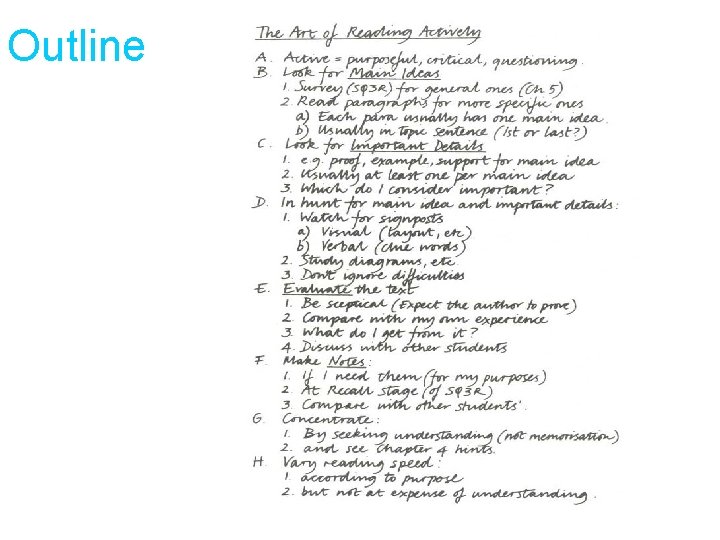 Outline
The Art of Reading Actively
A. Active = purposeful, critical, questioning.
B. Look for Main Ideas
1. Survey (SQ3R) for general ones (Ch 5)
2. Read paragraphs for more specific ones
a) Each para usually has one main idea.
b) Usually in topic sentence (1st or last?)
C. Look for Important Details
1. e.g. proof, example, support for main idea
2. Usually at least one per main idea
3. Which do I consider important?
D. In hunt for main idea and important details:
1. Watch for signposts
a) Visual (layout, etc)
b) Verbal (clue words)
2. Study diagrams, etc.
3. Don't ignore difficulties
E. Evaluate the text
1. Be sceptical (Expect the author to prove)
2. Compare with my own experience
3. What do I get from it?
4. Discuss with other students
F. Make Notes:
1. If I need them (for my purposes)
2. At Recall stage (of SQ3R)
3. Compare with other students'.
G. Concentrate:
1. By seeking understanding (not memorisation)
2. and see chapter 4 hints.
H. Vary reading speed:
1. according to purpose
2. but not at expense of understanding.